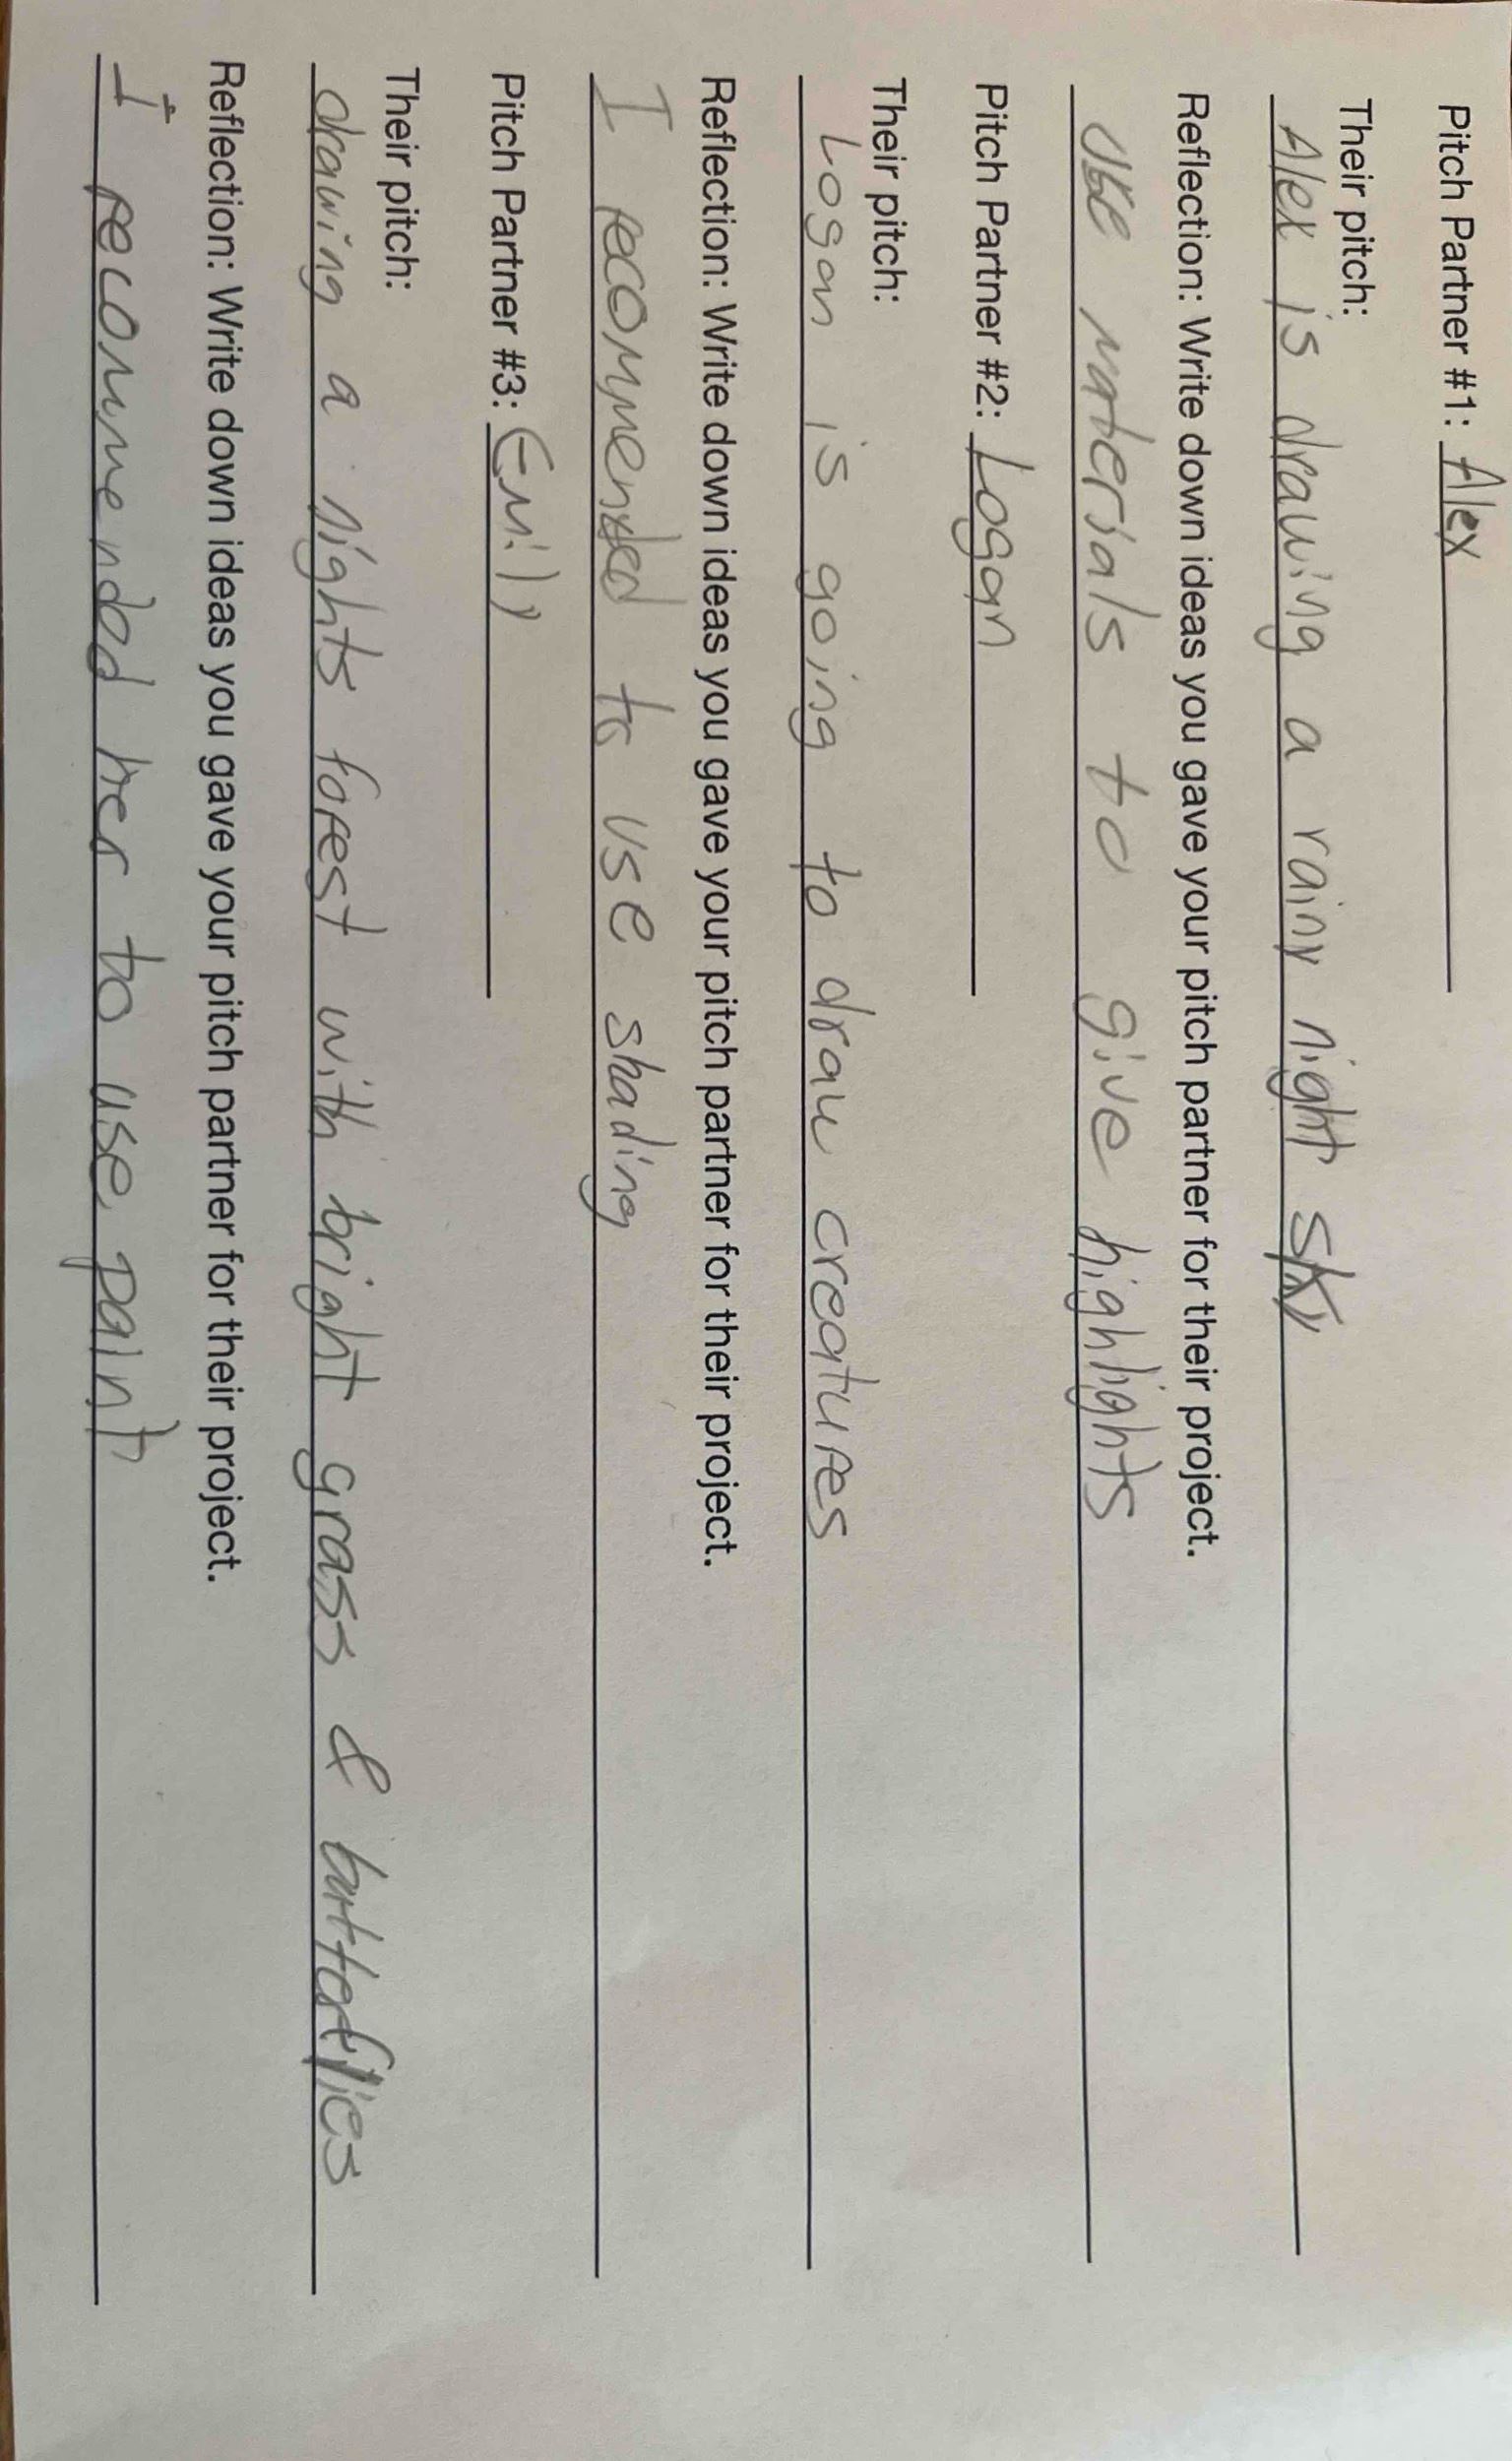 Pitch Partner #1: Alex
Their pitch:
Alex is drawing a rainy night sky
Reflection: Write down ideas you gave your pitch partner for their project.
Use materials to give highlights
Pitch Partner #2: Logan
Their pitch:
Logan is going to draw creatures
Reflection: Write down ideas you gave your pitch partner for their project.
I recommended to use shading
Pitch Partner #3: Emily
Their pitch:
drawing a nights forest with bright grass & butterflies
Reflection: Write down ideas you gave your pitch partner for their project.
I recommended her to use paint